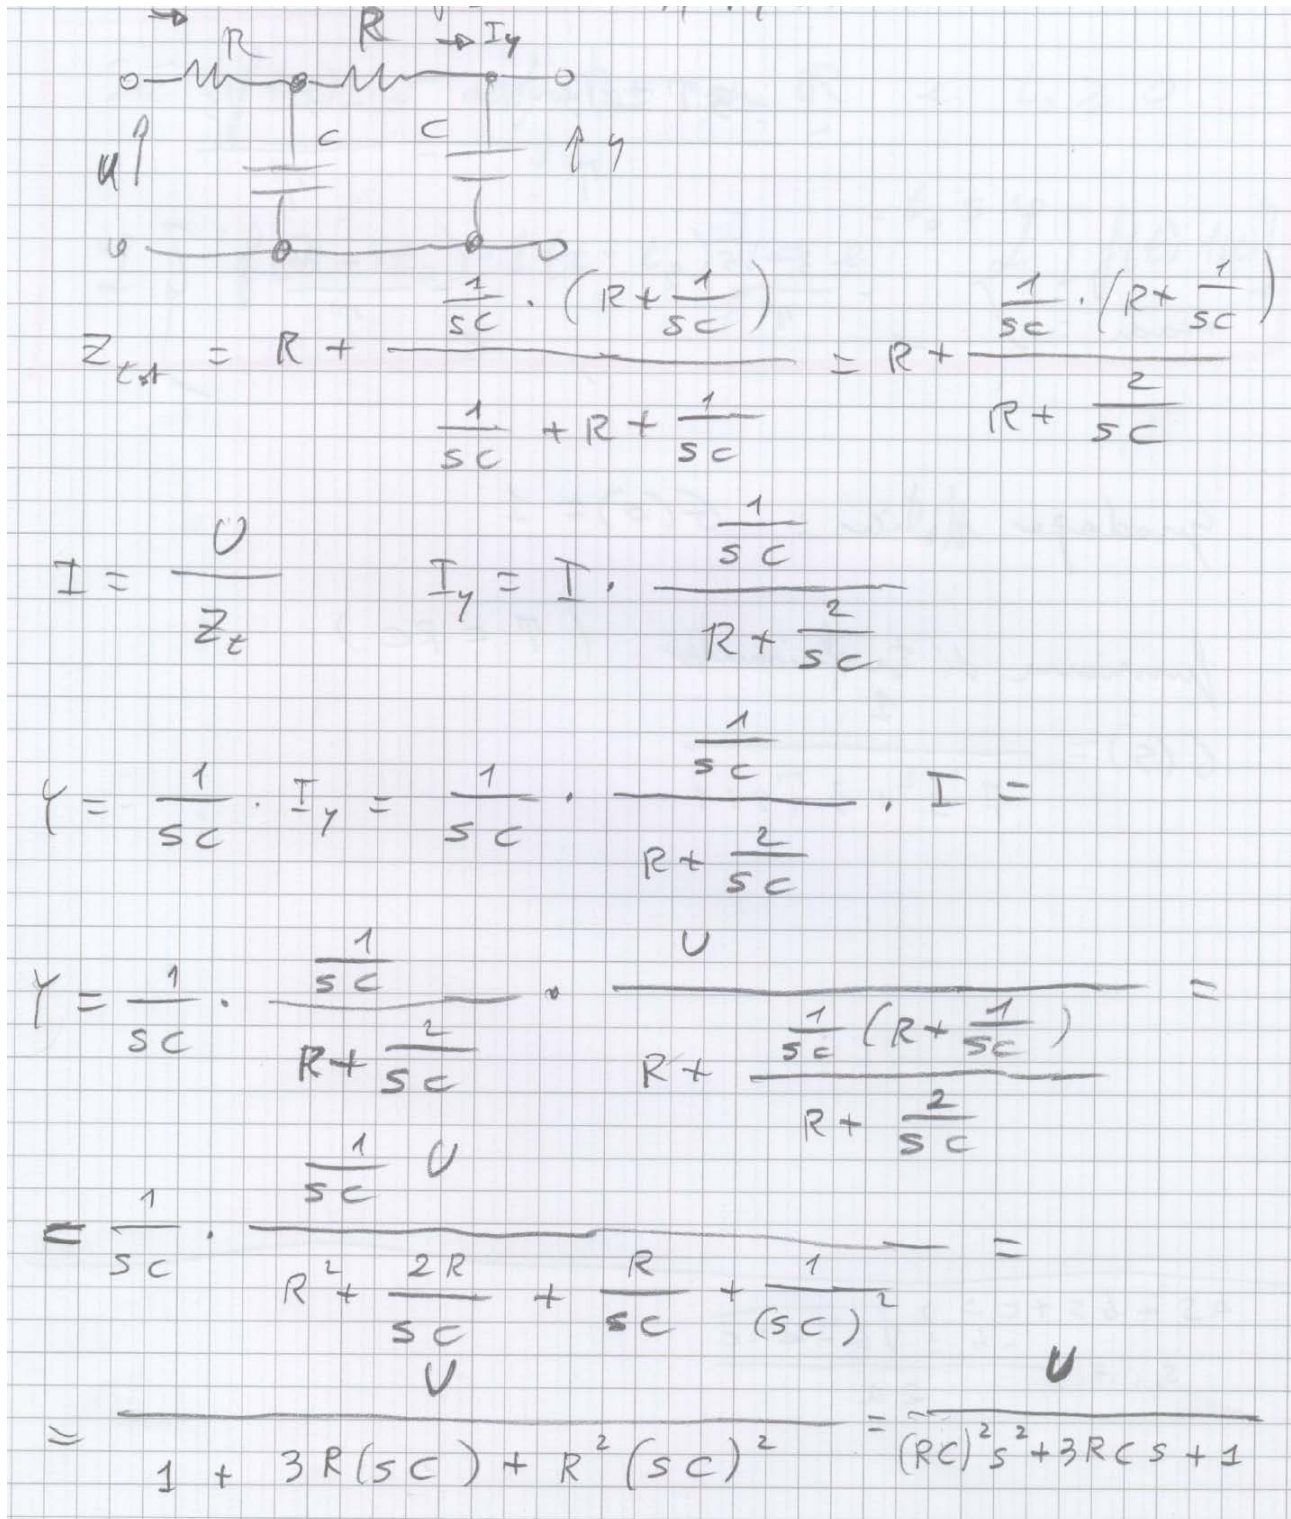 R R I_y
C C
u y
Z_tot = R + (1/(sC) · (R + 1/(sC))) / (1/(sC) + R + 1/(sC)) = R + (1/(sC) · (R + 1/(sC))) / (R + 2/(sC))
I = U / Z_t I_y = I · (1/(sC)) / (R + 2/(sC))
Y = 1/(sC) · I_y = 1/(sC) · (1/(sC)) / (R + 2/(sC)) · I =
Y = 1/(sC) · (1/(sC)) / (R + 2/(sC)) · U / (R + (1/(sC) (R + 1/(sC))) / (R + 2/(sC))) =
= 1/(sC) · (1/(sC) U) / (R² + 2R/(sC) + R/(sC) + 1/(sC)²) =
= U / (1 + 3R(sC) + R²(sC)²) = U / ((RC)²s² + 3RCs + 1)